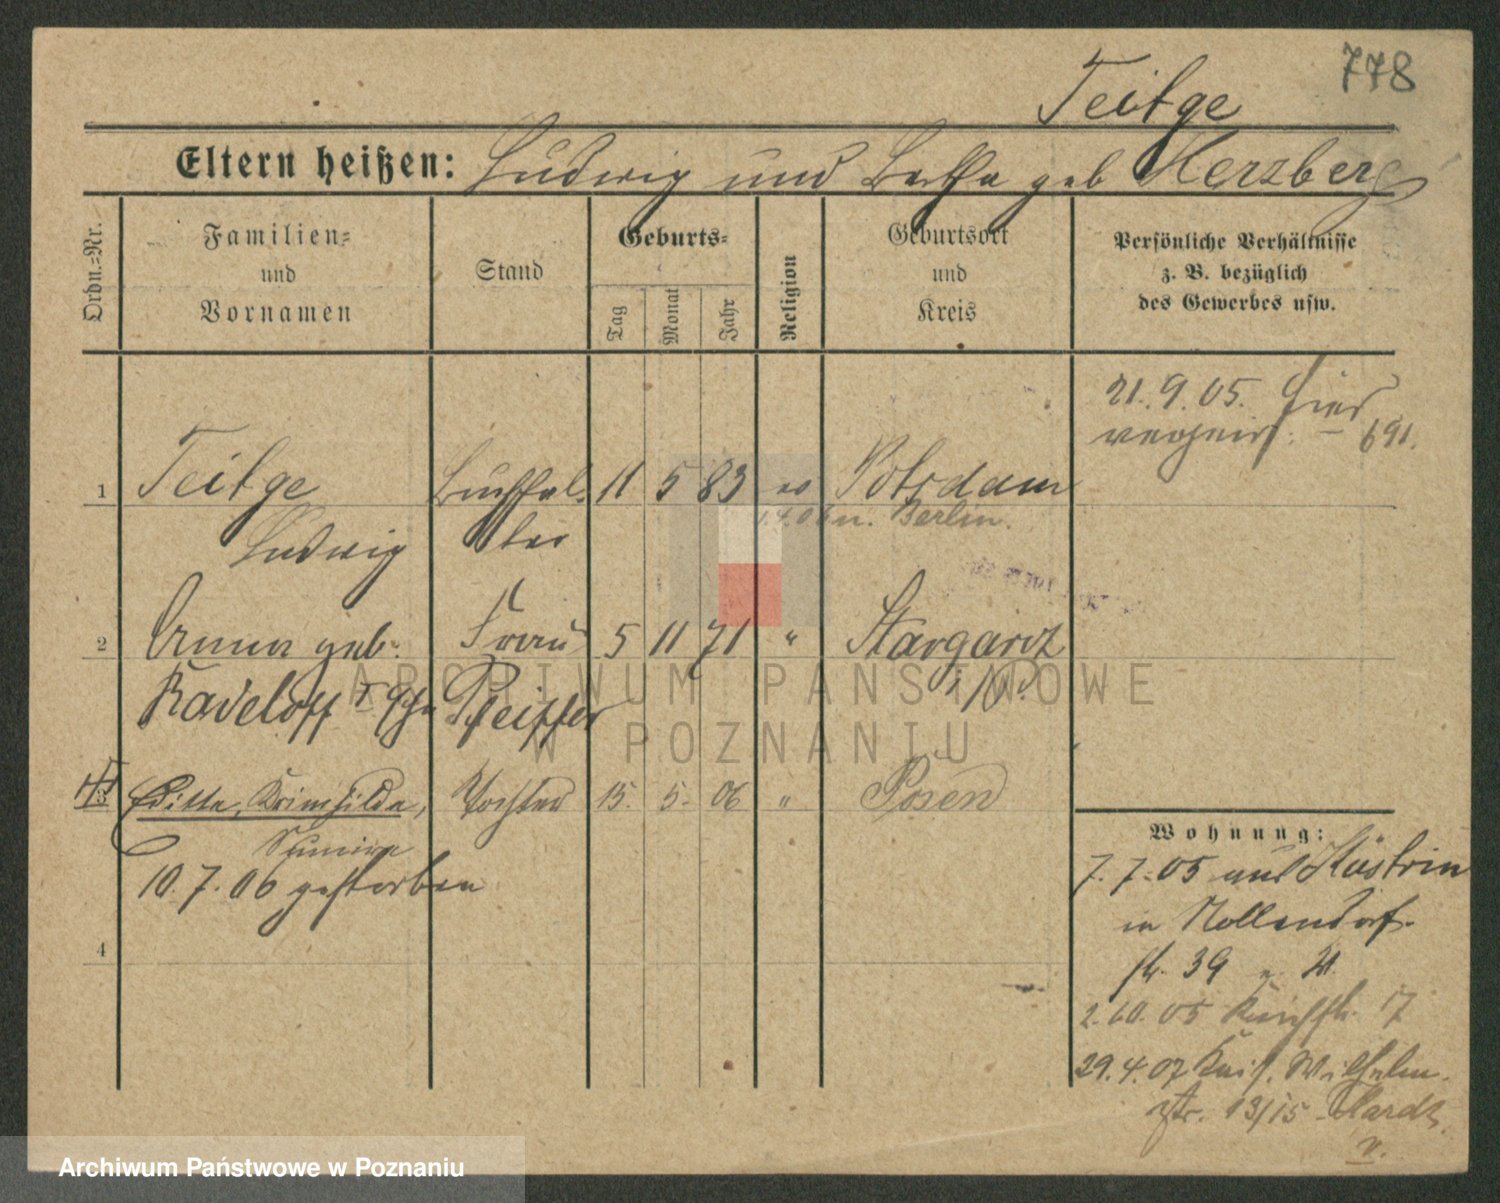 778
Teitge
Eltern heißen: Ludwig und Bertha geb Herzberg
Ordn.=Nr.
Familien=
und
Vornamen
Stand
Geburts=
Tag
Monat
Jahr
Religion
Geburtsort
und
Kreis
Persönliche Verhältnisse
z. B. bezüglich
des Gewerbes usw.
21. 9. 05. hier
691.
1 Teitge Buchhal- 11 5 83 ev Potsdam
Ludwig ter
n. Berlin.
2 Anna geb. Frau 5 11 71 " Stargardt
Radeloff Pfeiffer
i/P.
3 Editta, Krimhilde, Tochter 15. 5. 06 " Posen
10. 7. 06 gestorben
4
Wohnung:
7. 7. 05 aus Küstrin
in Nollendorf-
str. 39
2. 10. 05 Kirchstr. 17
29. 4. 07 Kais. Wilhelm-
str. 13/15
v.
ARCHIWUM PAŃSTWOWE
W POZNANIU
Archiwum Państwowe w Poznaniu